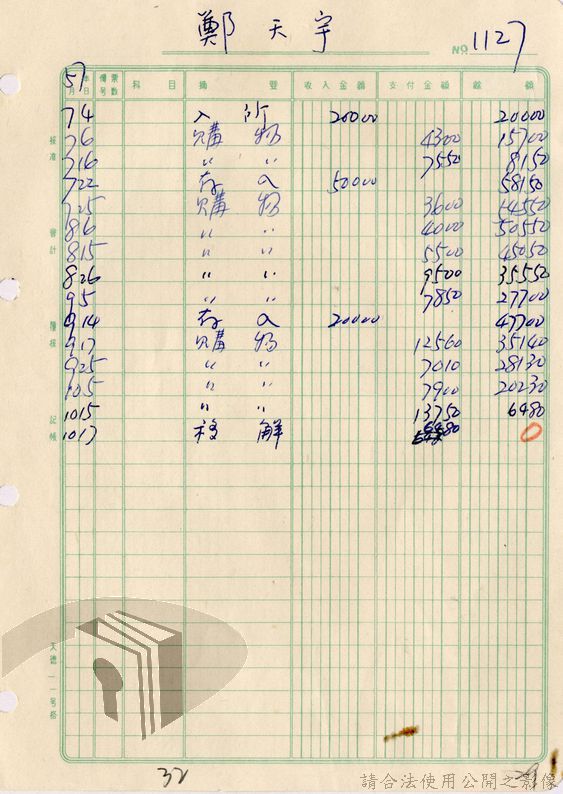 鄭天宇
NO. 1127
57年 月 日 傳票號數 科目 摘要 收入金額 支付金額 餘額
7 4 入所 20000 20000
7 6 購物 4300 15700
7 16 〃 〃 7550 8150
7 22 存入 50000 58150
7 25 購物 3600 54550
8 6 〃 〃 4000 50550
8 15 〃 〃 5500 45050
8 26 〃 〃 9500 35550
9 5 〃 〃 7850 27700
9 14 存入 20000 47700
9 17 購物 12560 35140
9 25 〃 〃 7010 28130
10 5 〃 〃 7900 20230
10 15 〃 〃 13750 6480
10 17 移解 6480 0
核准
會計
覆核
記帳
天德一一号格
32
請合法使用公開之影像